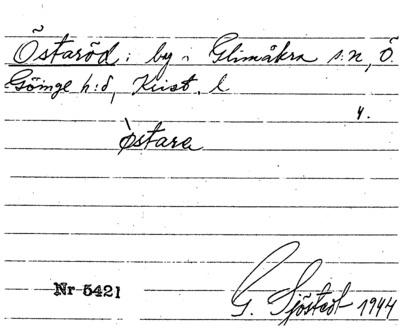 Östaröd: by i Glimåkra s:n, Ö.
Göinge h:d, Krist. l
4.
östare
Nr 5421
G. Sjöstedt 1944